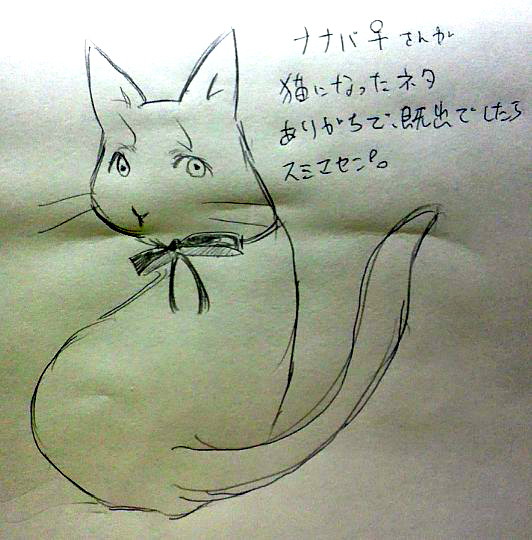 ナナバ♀さんが
猫になったネタ
ありがちで、既出でしたら
スミマセン°。